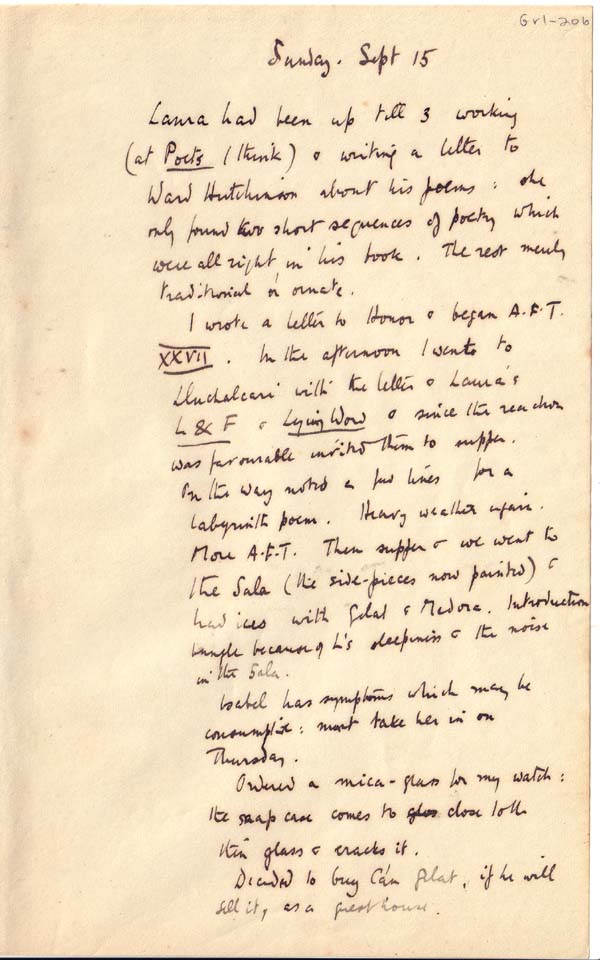 Gr1-206
Sunday. Sept 15
Laura had been up till 3 working
(at Poets I think) & writing a letter to
Ward Hutchinson about his poems: she
only found two short sequences of poetry which
were all right in his book. The rest merely
traditional or ornate.
I wrote a letter to Honor & began A.F.T.
XXVII. In the afternoon I went to
Lluchalcari with the letter & Laura's
L & F & Lying Word & since the reaction
was favourable invited them to supper.
On the way noted a few lines for a
labyrinth poem. Heavy weather again.
More A.F.T. Then supper & we went to
the Sala (the side-pieces now painted) &
had ices with Gelat & Medora. Introduction
bungle because of L's sleepiness & the noise
in the Sala.
Isabel has symptoms which may be
consumptive: must take her in on
Thursday.
Ordered a mica-glass for my watch:
the snap case comes to close to the
thin glass & cracks it.
Decided to buy C'án Gelat, if he will
sell it, as a guesthouse.